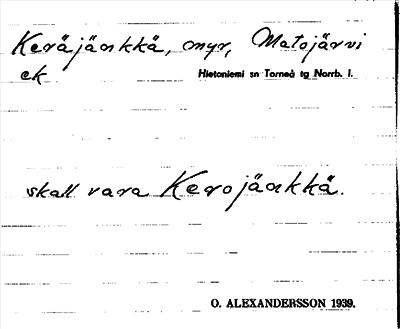 Keräjänkkä, myr, Matojärvi
ek Hietoniemi sn Torneå tg Norrb. l.
skall vara Kerojänkkä.
O. ALEXANDERSSON 1939.